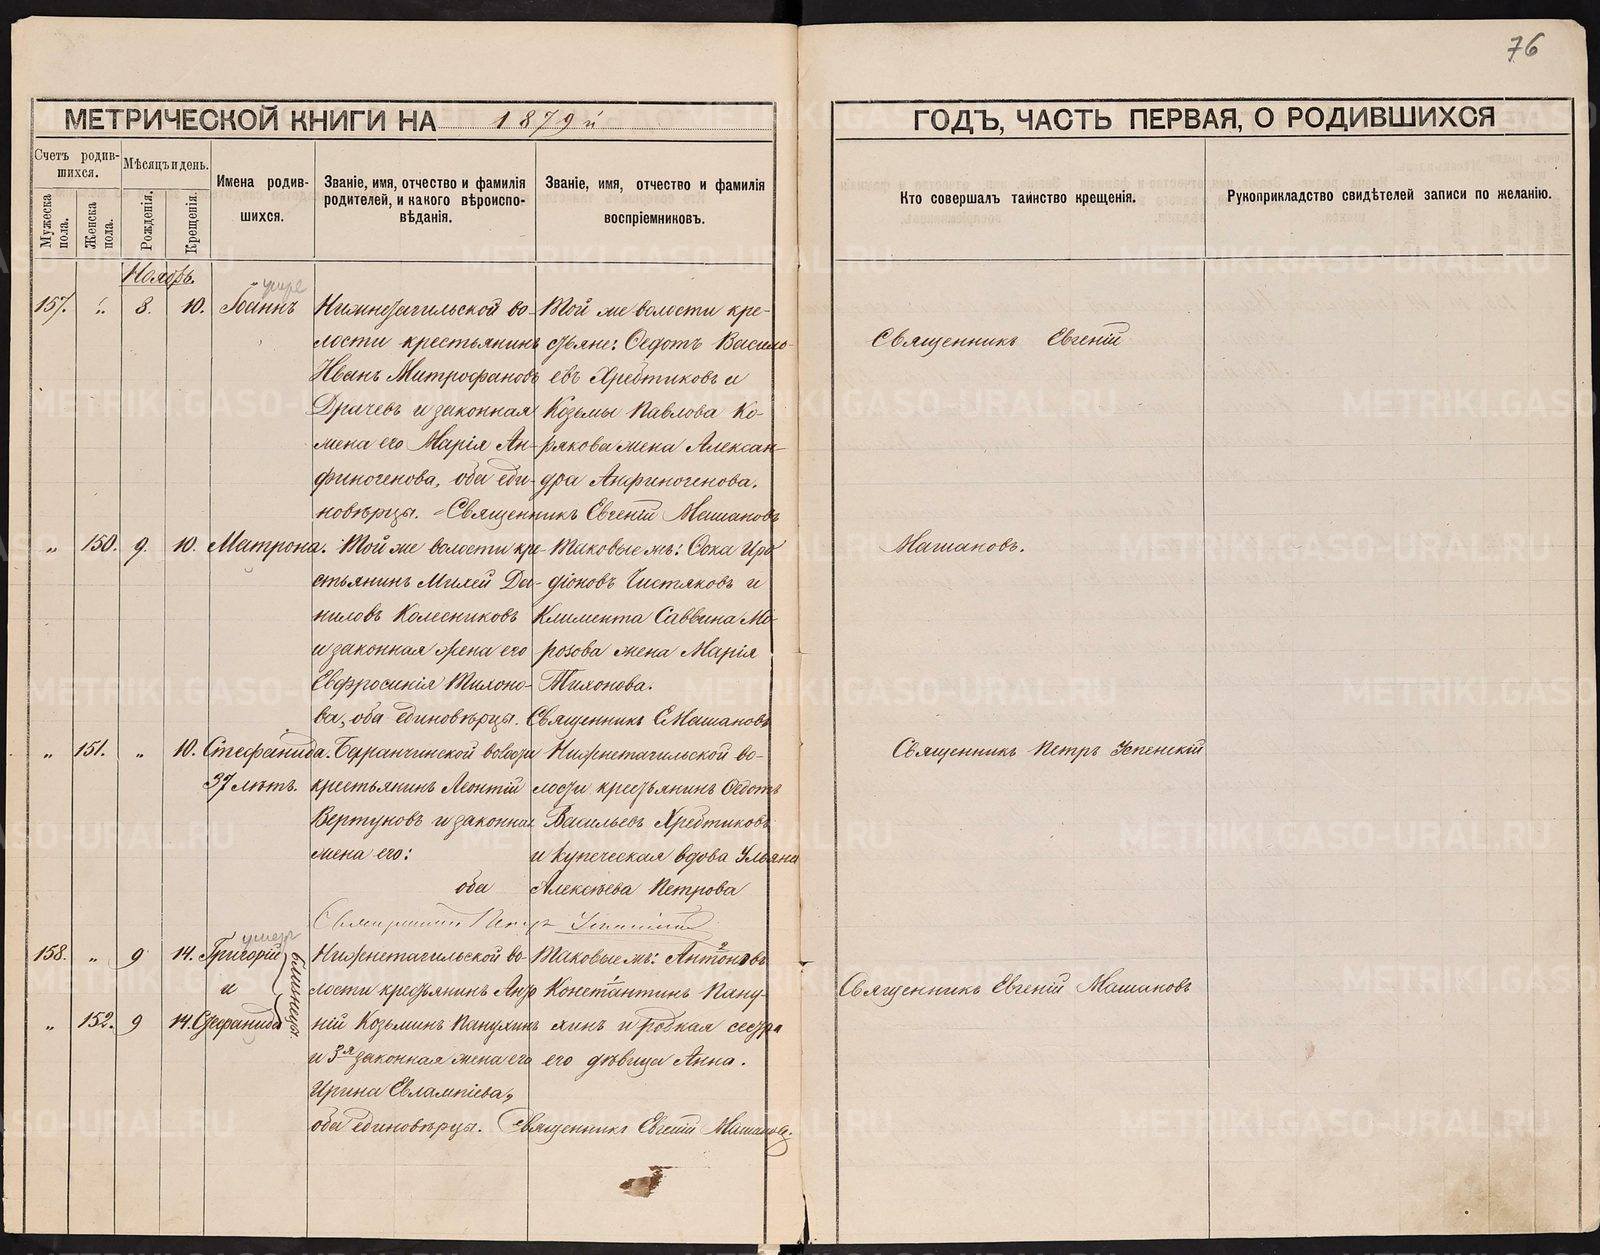 76
МЕТРИЧЕСКОЙ КНИГИ НА 1879й
ГОДЪ, ЧАСТЬ ПЕРВАЯ, О РОДИВШИХСЯ
Счетъ родившихся.
Мужеска пола.
Женска пола.
Мѣсяцъ и день.
Рожденія.
Крещенія.
Имена родившихся.
Званіе, имя, отчество и фамилія родителей, и какого вѣроисповѣданія.
Званіе, имя, отчество и фамилія воспріемниковъ.
Кто совершалъ таинство крещенія.
Рукоприкладство свидѣтелей записи по желанію.
Ноябрь.
умре
157. " 8. 10. Іоаннъ
Нижнетагильской во-
лости крестьянинъ
Иванъ Митрофановъ
Драчевъ и законная
жена его Марія Ан-
финогенова, оба еди-
новѣрцы.
Той же волости кре-
стьяне: Ѳедотъ Василь-
евъ Хребтиковъ и
Козьмы Павлова Ко-
рякова жена Алексан-
дра Анфиногенова.
Священникъ Евгеній Машановъ
Священникъ Евгеній
" 150. 9. 10. Матрона.
Той же волости кре-
стьянинъ Михей Да-
ниловъ Колесниковъ
и законная жена его
Евфросинія Тихоно-
ва, оба единовѣрцы.
Таковые жъ: Сока Иро
діоновъ Чистяковъ и
Климента Саввина Мо-
розова жена Марія
Тихонова.
Священникъ Е Машановъ
Машановъ.
" 151. " 10. Стефанида.
37 лѣтъ.
Баранчинской волости
крестьянинъ Леонтій
Вертуновъ и законная
жена его:
оба
Нижнетагильской во-
лости крестьянинъ Ѳедотъ
Васильевъ Хребтиковъ
и купеческая вдова Ульяна
Алексѣева Петрова
Священникъ Петръ Успенскій
Священникъ Петръ Успенскій
умеръ
158. " 9 14. Григорій
и
" 152. 9 14. Стефанида
близнецы.
Нижнетагильской во-
лости крестьянинъ Анфи
ній Козьминъ Панухинъ
и 3я законная жена его
Ирина Евлампіева,
оба единовѣрцы.
Таковые жъ: Антоновъ
Константинъ Пану-
хинъ и родная сестра
его дѣвица Анна.
Священникъ Евгеній Машановъ.
Священникъ Евгеній Машановъ
METRIKI.GASO-URAL.RU